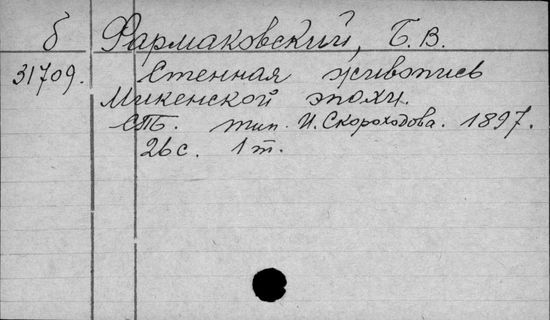 б Фармаковский, Б.В.
31709. Стенная живопись
Микенской эпохи.
СПБ. тип. И. Скороходова. 1897.
26 с. 1 т.